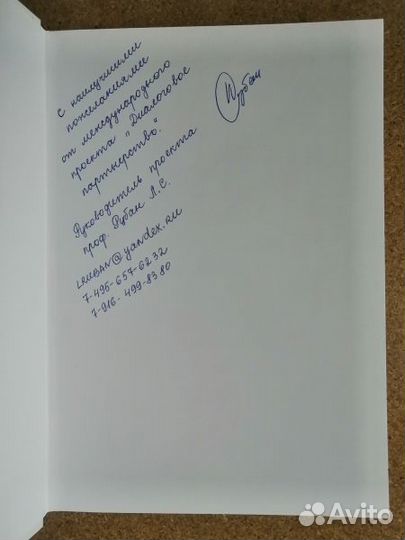 С наилучшими
пожеланиями
от международного
проекта "Диалоговое
партнерство".
Руководитель проекта
проф. Рубан Л.С.
LRUBAN@yandex.RU
7-495-657-6232
7-916-499-8380
Рубан
Avito